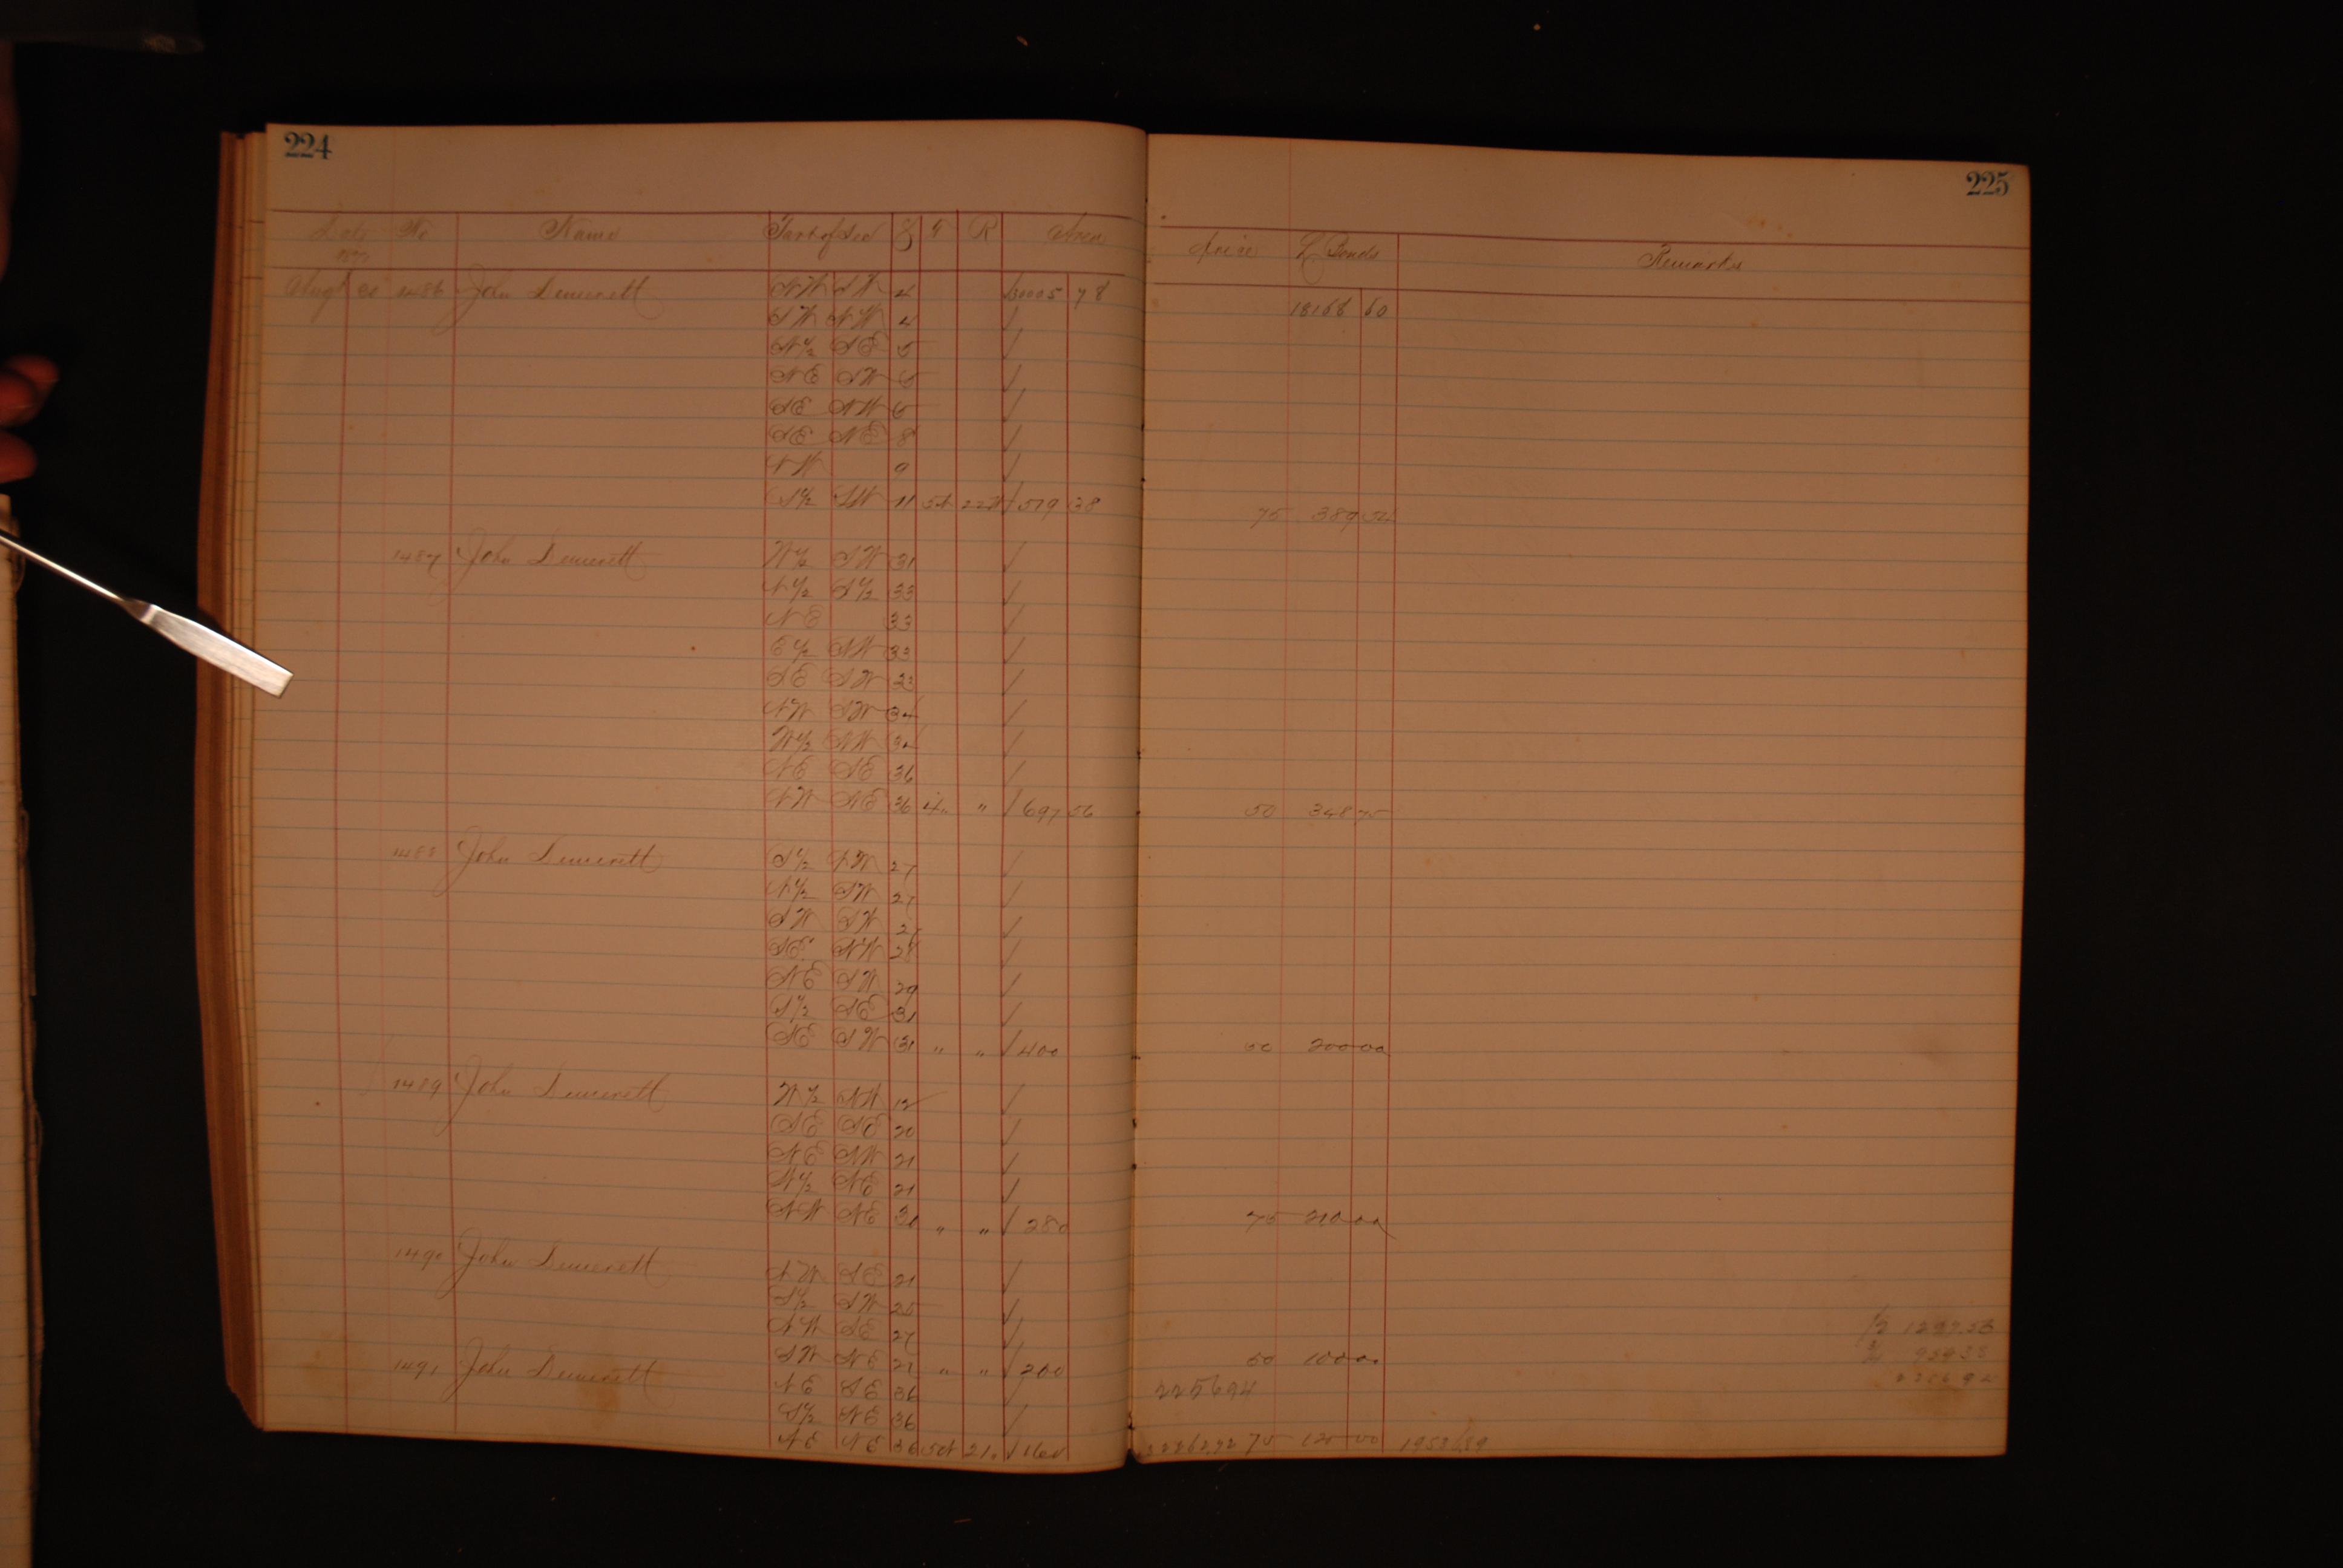 224
225
No Name Part of Sec S T R Area
Price Bonds Remarks
Augt 1486 John Demerett NW SW 4 30005 78
18168 60
SW NW 4
N½ SE 5
NE SW 5
SE NW 5
SE NE 8
NW 9
S½ SW 11 54 22W 519 38 75 389 52
1487 John Demerett W½ SW 31
N½ S½ 33
NE 33
E½ NW 33
SE SW 33
NW SW 34
W½ NW 34
NE SE 36
NW NE 36 " 697 56 50 348 75
1488 John Demerett S½ NW 27
N½ SW 27
SW SW 27
SE NW 28
NE SW 29
S½ SE 31
SE SW 31 " " 400 50 200 00
1489 John Demerett W½ NW 12
SE SE 20
NE NW 21
N½ NE 21
NW NE 31 " " 280 75 210 00
1490 John Demerett NW SE 21
S½ SW 25
NW SE 27
SW NE 21 " " 200 50 100 00
1491 John Demerett NE SE 36
225694
S½ NE 36
NE NE 36 54 21 " 160 75 120 00